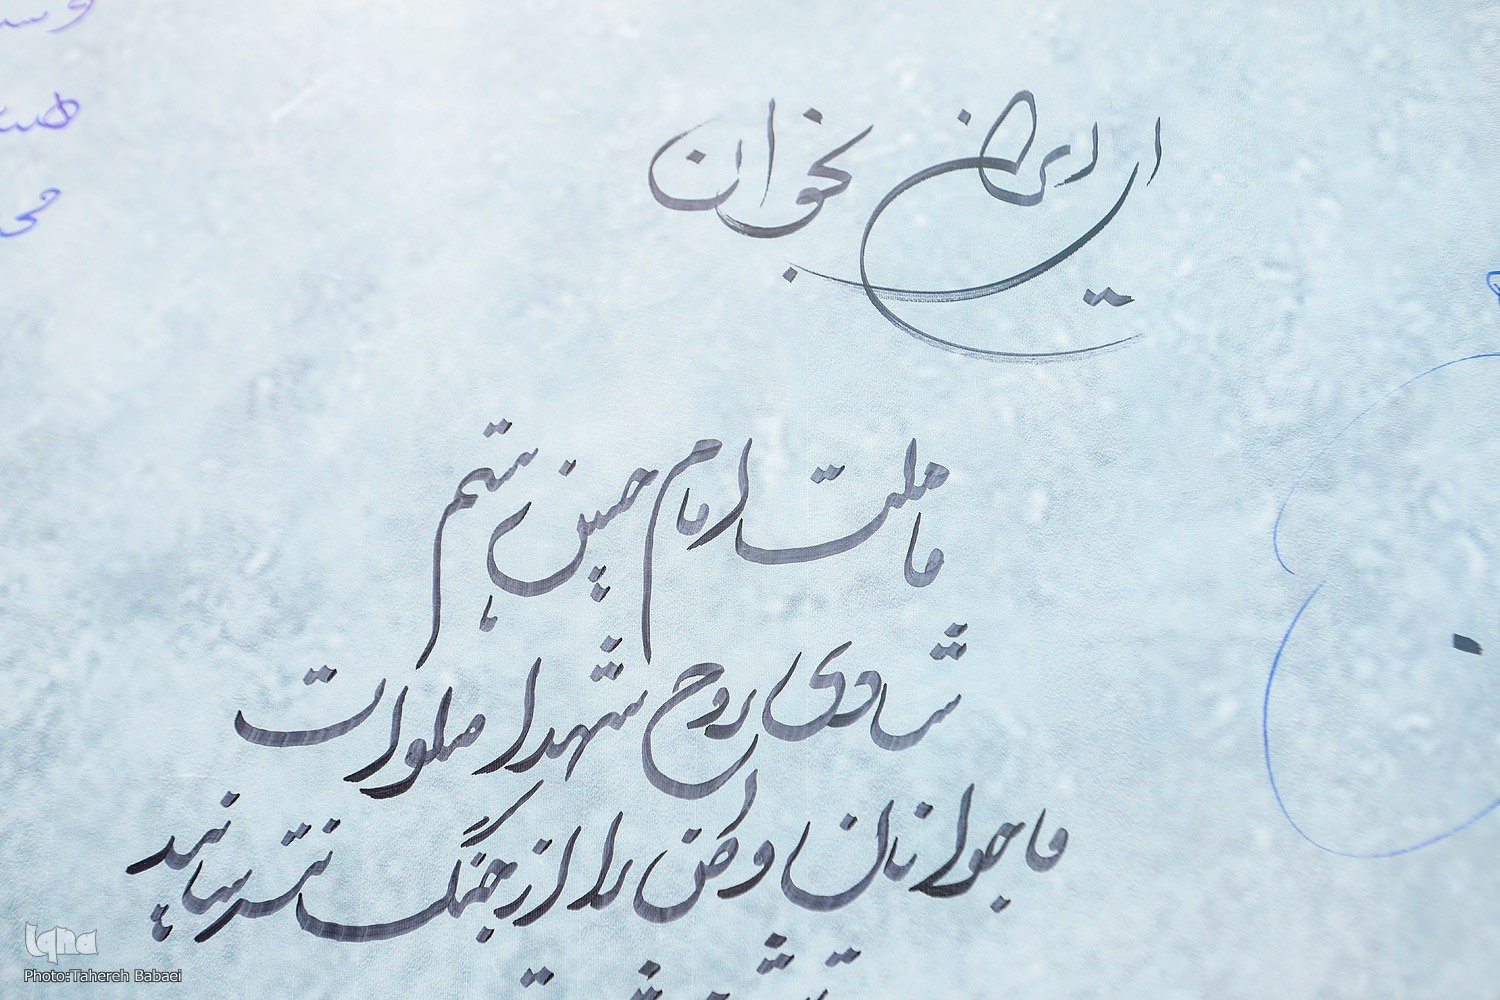 ای ایران بخوان
ما ملت امام حسینیم
شادی روح شهدا صلوات
ما جوانان وطن را از جنگ نترسانید
Iqna
Photo:Tahereh Babaei